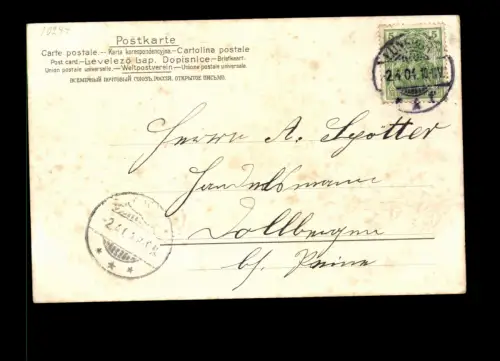 1024
Postkarte
Carte postale — Karta korespondencyjna — Cartolina postale
Post card. — Levelező Lap. Dopisnice — Briefkaart.
Union postale universelle. — Weltpostverein — Unione postale universale.
ВСЕМІРНЫЙ ПОЧТОВЫЙ СОЮЗЪ. РОССІЯ. ОТКРЫТОЕ ПИСЬМО.
5 5
2.4.04.
Herrn A. Spötter
Handelsmann
Dollbergen
b/ Peine
2.4.04